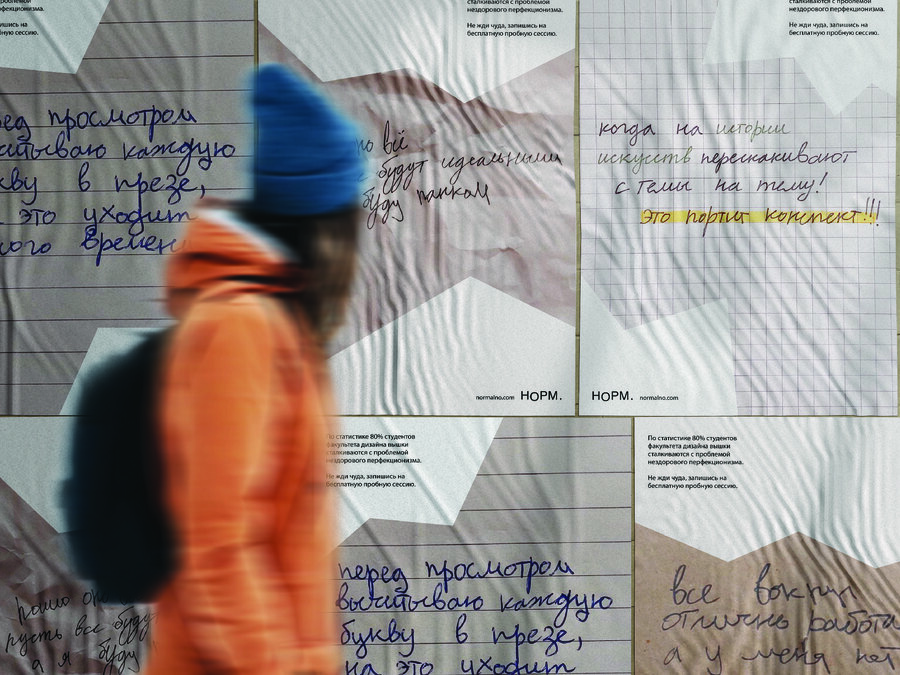 сталкиваются с проблемой
нездорового перфекционизма.
Не жди чуда, запишись на
бесплатную пробную сессию.
сталкиваются с проблемой
нездорового перфекционизма.
Не жди чуда, запишись на
бесплатную пробную сессию.
просмотром
каждую
в презе,
это уходит
всё
будут идеальными
буду панком
когда на истории
искусств перескакивают
с темы на тему!
это портит конспект!!!
normalno.com НОРМ.
НОРМ. normalno.com
По статистике 80% студентов
факультета дизайна вышки
сталкиваются с проблемой
нездорового перфекционизма.
Не жди чуда, запишись на
бесплатную пробную сессию.
перед просмотром
вычитываю каждую
букву в презе,
на это уходит
По статистике 80% студентов
факультета дизайна вышки
сталкиваются с проблемой
нездорового перфекционизма.
Не жди чуда, запишись на
бесплатную пробную сессию.
все вокруг
отлично
а у меня нет
пусть все
а я буду